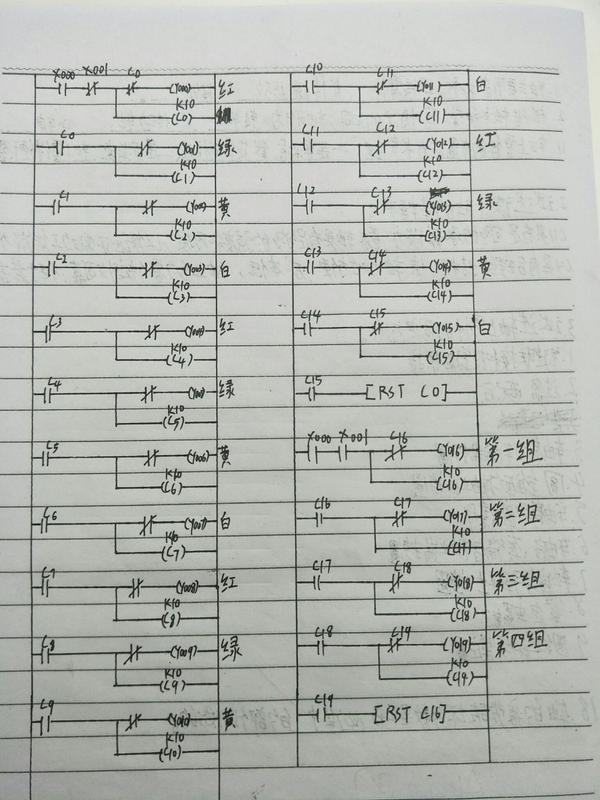 X000 X001 C0
(Y000) 红
K10
(C0)
C0
(Y001) 绿
K10
(C1)
C1
黄
K10
(C2)
C2
(Y003) 白
K10
(C3)
C3
红
K10
(C4)
C4
绿
K10
(C5)
C5
(Y006) 黄
K10
(C6)
C6
(Y007) 白
K10
(C7)
C7
(Y008) 红
K10
(C8)
C8
(Y009) 绿
K10
(C9)
C9
(Y010) 黄
K10
(C10)
C10 C11
(Y011) 白
K10
(C11)
C11 C12
(Y012) 红
K10
(C12)
C12 C13
(Y013) 绿
K10
(C13)
C13 C14
(Y014) 黄
K10
(C14)
C14 C15
(Y015) 白
K10
(C15)
C15
[RST C0]
X000 X001 C16
(Y016) 第一组
K10
(C16)
C16 C17
(Y017) 第二组
K10
(C17)
C17 C18
(Y018) 第三组
K10
(C18)
C18 C19
(Y019) 第四组
K10
(C19)
C19
[RST C16]